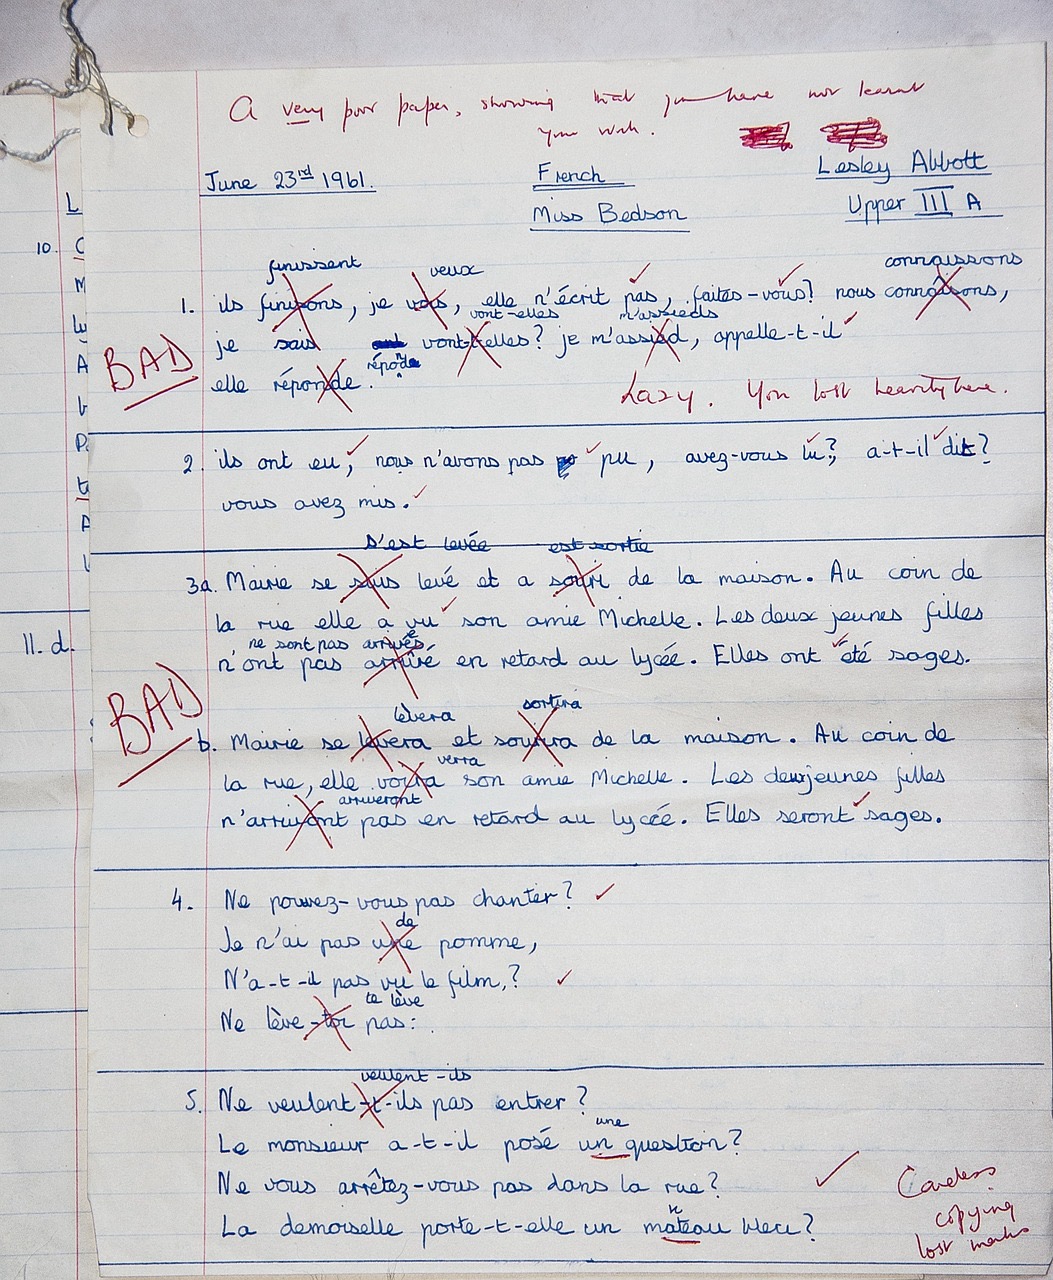 A very poor paper, showing that you have not learnt
your work.
June 23rd 1961.
French
Lesley Abbott
Miss Bedson
Upper III A
finissent veux connaissons
1. ils finissons, je vois, elle n'écrit pas, faites-vous? nous connaîsons,
vont-elles m'assieds
BAD
je sais vont-elles? je m'assied, appelle-t-il
réponde
elle réponde.
Lazy. You lost heavily here.
2. ils ont eu, nous n'avons pas pu, avez-vous lu?, a-t-il dit?
vous avez mis.
s'est levée est sortie
3a. Mairie se suis levé et a souri de la maison. Au coin de
la rue elle a vu son amie Michelle. Les deux jeunes filles
ne sont pas arrivés
n'ont pas arrivé en retard au lycée. Elles ont été sages.
BAD
lèvera sortira
b. Mairie se levera et sourira de la maison. Au coin de
verra
la rue, elle voira son amie Michelle. Les deuxjeunes filles
arriveront
n'arrivont pas en retard au lycée. Elles seront sages.
4. Ne pouvez-vous pas chanter?
de
Je n'ai pas une pomme,
N'a-t-il pas vu le film,?
te lève
Ne lève-toi pas:
veulent-ils
5. Ne veulent-t-ils pas entrer?
une
Le monsieur a-t-il posé un question?
Ne vous arrêtez-vous pas dans la rue?
n
La demoiselle porte-t-elle un mateau bleu?
Careless
copying
lost marks
10.
11. d.